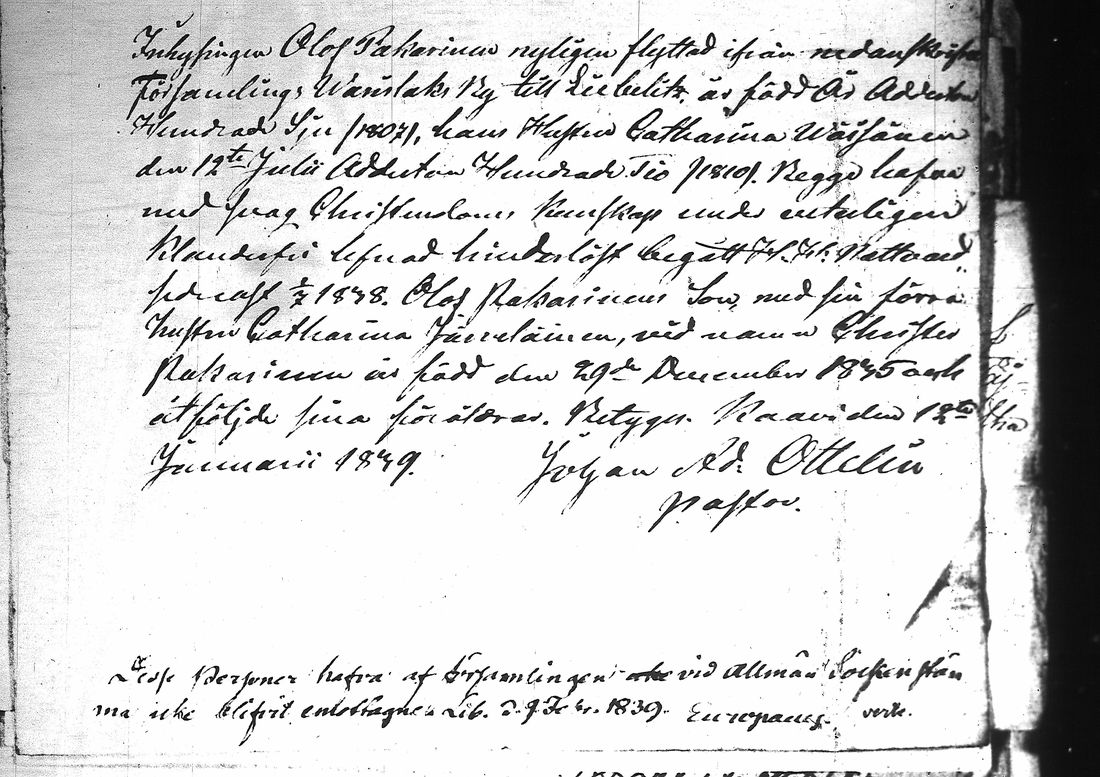 Inhysingen Olof Pakarinen nyligen flyttad ifrån nedanskrifna
Församlings Warislaks By till Liebelitz, är född År Aderton
Hundrade Sju /1807/, hans Hustru Catharina Wäisänen
den 12te Julii Aderton Hundrade Tio /1810/. Begge hafva
med svag Christendoms kunskap under enteligen
klanderfri lefnad hinderlöst begått H. H. Nattvard
sednast 1/7 1838. Olof Pakarinens Son, med sin förra
hustru Catharina Jurvelainen, vid namn Christer
Pakarinen är född den 29de December 1835 och
åtföljde sina föräldrar. Betygar. Kaavi den 12te
Januarii 1839. Johan Ad: Ottelin
Pastor.
Desse Personer hafva af Församlingen vid Allmän Sockenstäm
ma icke blifvit emottagne. Lib. d. 9 Febr. 1839. Europaeus.